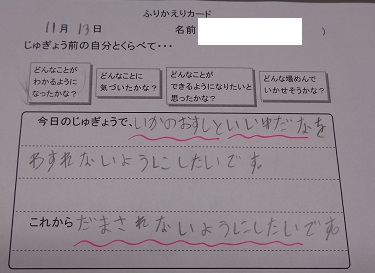 ふりかえりカード
11月13日 名前 )
じゅぎょう前の自分とくらべて・・・
どんなことがわかるようになったかな？ どんなことに気づいたかな？ どんなことができるようになりたいと思ったかな？ どんな場めんでいかせそうかな？
今日のじゅぎょうで、いかのおすしといいゆだなを
わすれないようにしたいです。
これから だまされないようにしたいです